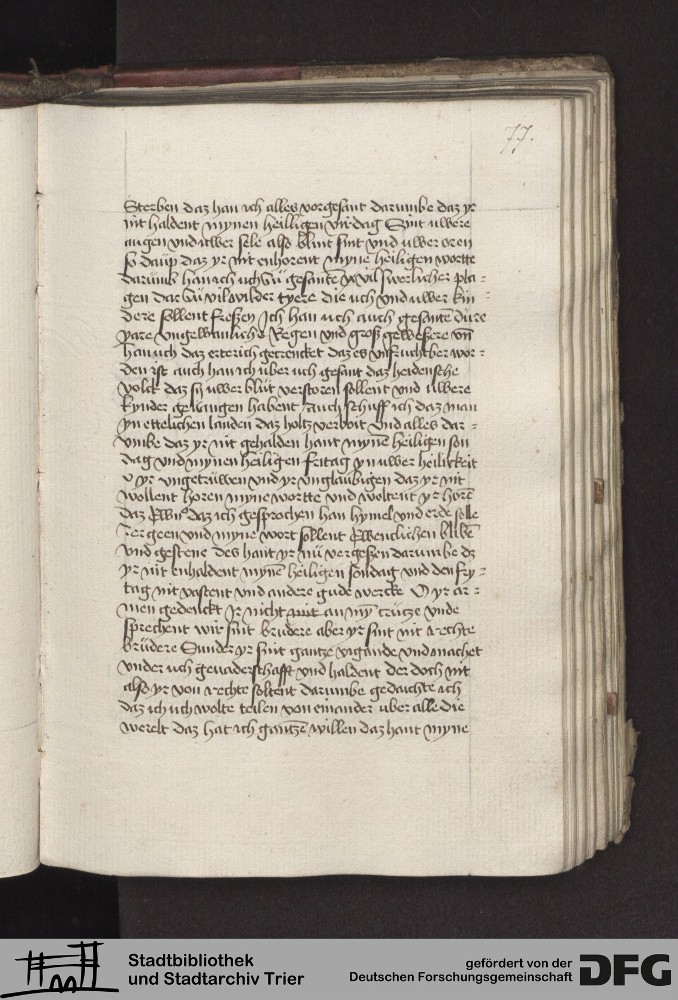 77.
Sterben daz han ich alles vorgesant darumbe daz yr
nit haldent mynen heilligen virdag Sint uwere
augen vnd uwer sele also blint sint vnd uwer oren
so daup daz yr nit enhorent myne heiligen wortte
darumb han ich uch zu gesantt vil swerlicher pla-
gen dar zu vil wilder tyere die uch vnd uwer kin-
dere sollent freßen Jch han uch auch gesantt dure
Jare vngewanliche Regen vnd groß geweßere vnd
han uch daz erterich getrencket daz es vnfruchtber wor-
den ist auch han ich uber uch gesant daz heidensche
volck daz sy uwer blut verstoren sollent vnd uwere
kynder gefangen habent Auch schuff ich daz man
yn ettelichen landen daz holtz verbott Vnd alles dar-
vmbe daz yr nit gehalden hant myne heiligen son
dag vnd mynen heiligen fritag yn uwer heilickeit
O yr vngetruwen vnd yr vnglaubigen daz yr nit
wollent horen myne wortte vnd woltent yr horen
daz daz ich gesprochen han hymel vnd erde solle
zergeen vnd myne wort sollent ewenclichen bliben
vnd gestene des hant yr nu vergeßen darumbe dz
yr nit enhaldent myne heiligen sondag vnd den fry-
tag nit vastent vnd andere gude wercke O yr ar-
men gedenckt Jr nicht an myn crutze vnde
sprechent wir sint brudere aber yr sint nit rechte
brudere Sunder yr sint gantze vigande vnd machet
vnder uch gevaderschafft vnd haldent der doch nit
also yr von rechte soltent darumbe gedachte ich
daz ich uch wolte teilen von einander uber alle die
werelt daz hat ich gantzen willen daz hant myne
Stadtbibliothek
und Stadtarchiv Trier
gefördert von der
Deutschen Forschungsgemeinschaft
DFG